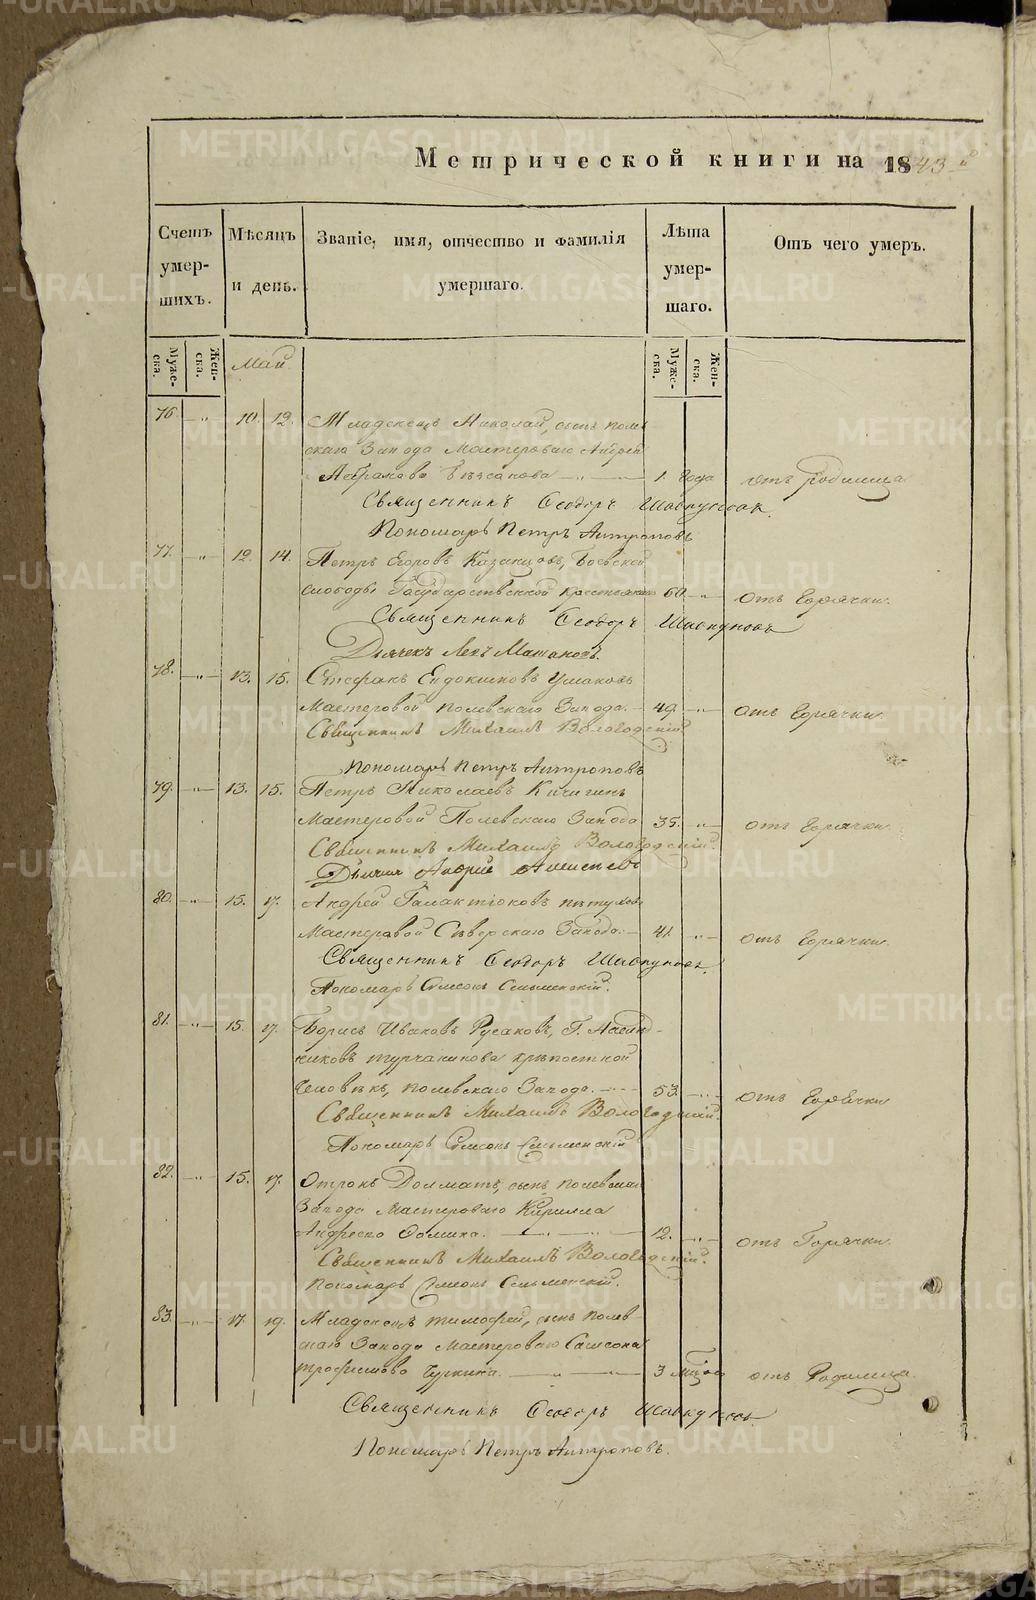 Метрической книги на 1843 й
Счетъ умер- шихъ.
Мѣсяцъ и день.
Званіе, имя, отчество и фамилія умершаго.
Лѣта умер- шаго.
Отъ чего умеръ.
Муже- ска.
Жен- ска.
Май
Муже- ска.
Жен- ска.
76. — " — 10. 12. Младенецъ Николай, сынъ полев
скаго Завода Мастероваго Андрея
— " — 1. года отъ родимца
Священникъ Феодоръ Шавкуновъ.
Пономарь Петръ Антроповъ
77. — " — 12. 14. Петръ Егоровъ Казанцовъ, Боевской
слободы Государственной крестьянинъ 60. — " — отъ Горячки.
Священникъ Феодоръ Шавкуновъ
Дьячекъ
78. — " — 13. 15. Стефанъ Евдокимовъ Ушаковъ
Мастеровой полевскаго Завода. — 49. — " — отъ Горячки.
Священникъ Михаилъ Вологодскій.
Пономарь Петръ Антроповъ
79. — " — 13. 15. Петръ Николаевъ Кичигинъ
Мастеровой Полевскаго Завода 35. — " — отъ Горячки.
Священникъ Михаилъ Вологодскій.
Дьячекъ Андрей
80. — " — 15. 17. Андрей Галактіоновъ
Мастеровой Сѣверскаго Завода. — 41. — " — отъ Горячки.
Священникъ Феодоръ Шавкуновъ.
Пономарь Симеонъ Сельменскій.
81. — " — 15. 17. Борисъ Ивановъ Русаковъ, Г. Наслѣд-
никовъ турчанинова крѣпостной
человѣкъ, полевскаго Завода. — 53. — " — отъ Горячки
Священникъ Михаилъ Вологодскій.
Пономарь Симеонъ Сельменскій
82. — " — 15. 17. Отрокъ Долматъ, сынъ полевскаго
Завода Мастероваго Кирилла
Андреева Фомина. — " — 12. — " — отъ Горячки.
Священникъ Михаилъ Вологодскій.
Пономарь Симеонъ Сельменскій.
83. — " — 17. 19. Младенецъ тимофей, сынъ полев-
скаго Завода Мастероваго Самсона
трофимова — " — 3 мѣсяц. отъ Родимца.
Священникъ Феодоръ Шавкуновъ
Пономарь Петръ Антроповъ.
METRIKI.GASO-URAL.RU